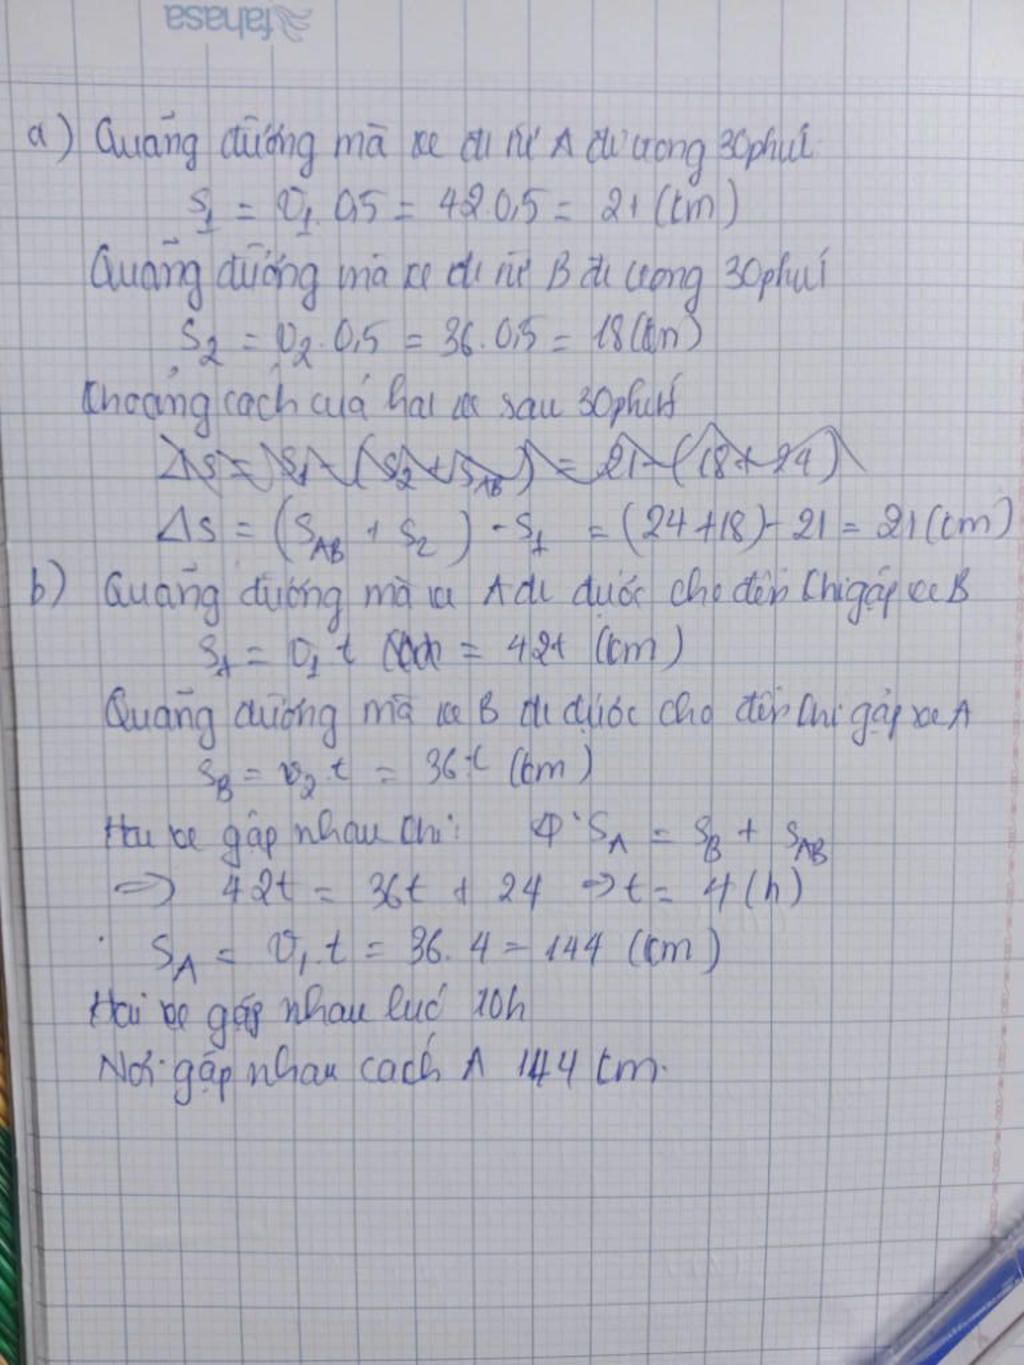 fahasa
a) Quãng đường mà xe đi từ A đi trong 30phút
S₁ = v₁. 0,5 = 42.0,5 = 21 (km)
Quãng đường mà xe đi từ B đi trong 30phút
S₂ = v₂. 0,5 = 36. 0,5 = 18(km)
Khoảng cách của hai xe sau 30phút
Δs = S₁ - (S₂ + S_AB) = 21 - (18 + 24)
Δs = (S_AB + S₂) - S₁ = (24+18) - 21 = 21 (km)
b) Quãng đường mà xe A đi được cho đến khi gặp xe B
S_A = v₁ t = 42t (km)
Quãng đường mà xe B đi được cho đến khi gặp xe A
S_B = v₂.t = 36t (km)
Hai xe gặp nhau khi: S_A = S_B + S_AB
=> 42t = 36t + 24 => t = 4 (h)
S_A = v₁.t = 36. 4 = 144 (km)
Hai xe gặp nhau lúc 10h
Nơi gặp nhau cách A 144 km.